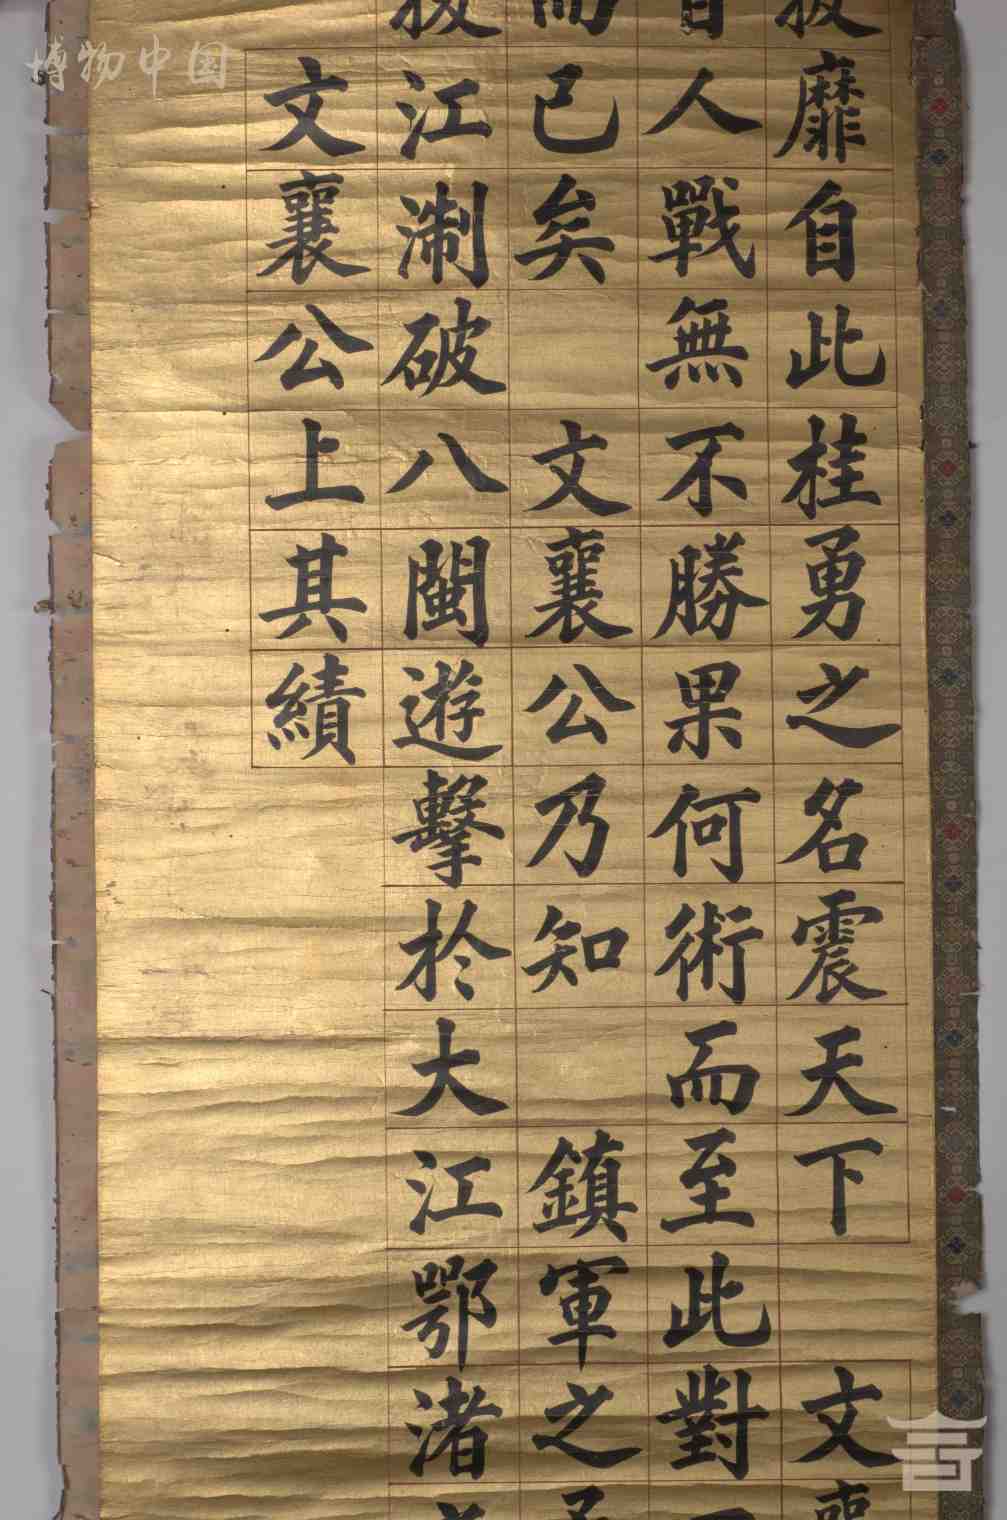 博物中国
披靡自此桂勇之名震天下 文襄
人戰無不勝果何術而至此對
而已矣 文襄公乃知 鎮軍之
拔江淛破八閩遊擊於大江鄂渚
文襄公上其績